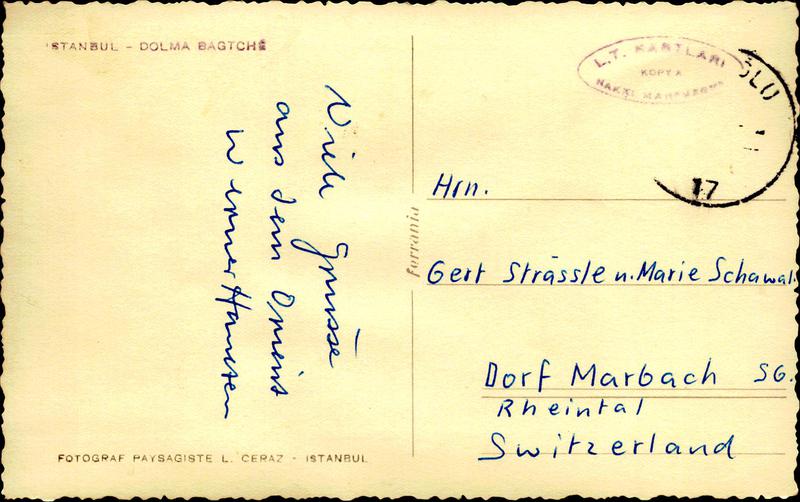 ISTANBUL - DOLMA BAGTCHÉ
Viele Grüsse
aus dem Orient
Werner
FOTOGRAF PAYSAGISTE L. CERAZ - ISTANBUL
ferrania
L.T. KARTLARI
KOPYA
HAKKI MAHFUZDUR
17
Hrn.
Gert Strässle u. Marie Schawal.
Dorf Marbach SG.
Rheintal
Switzerland